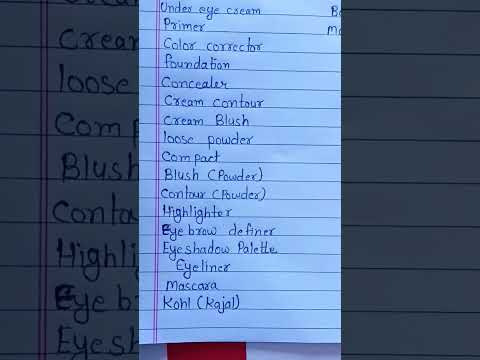 Under eye cream
Primer
Color corrector
foundation
Concealer
Cream contour
Cream Blush
loose powder
Compact
Blush (Powder)
Contour (Powder)
Highlighter
Eyebrow definer
Eyeshadow Palette
Eyeliner
Mascara
Kohl (Kajal)